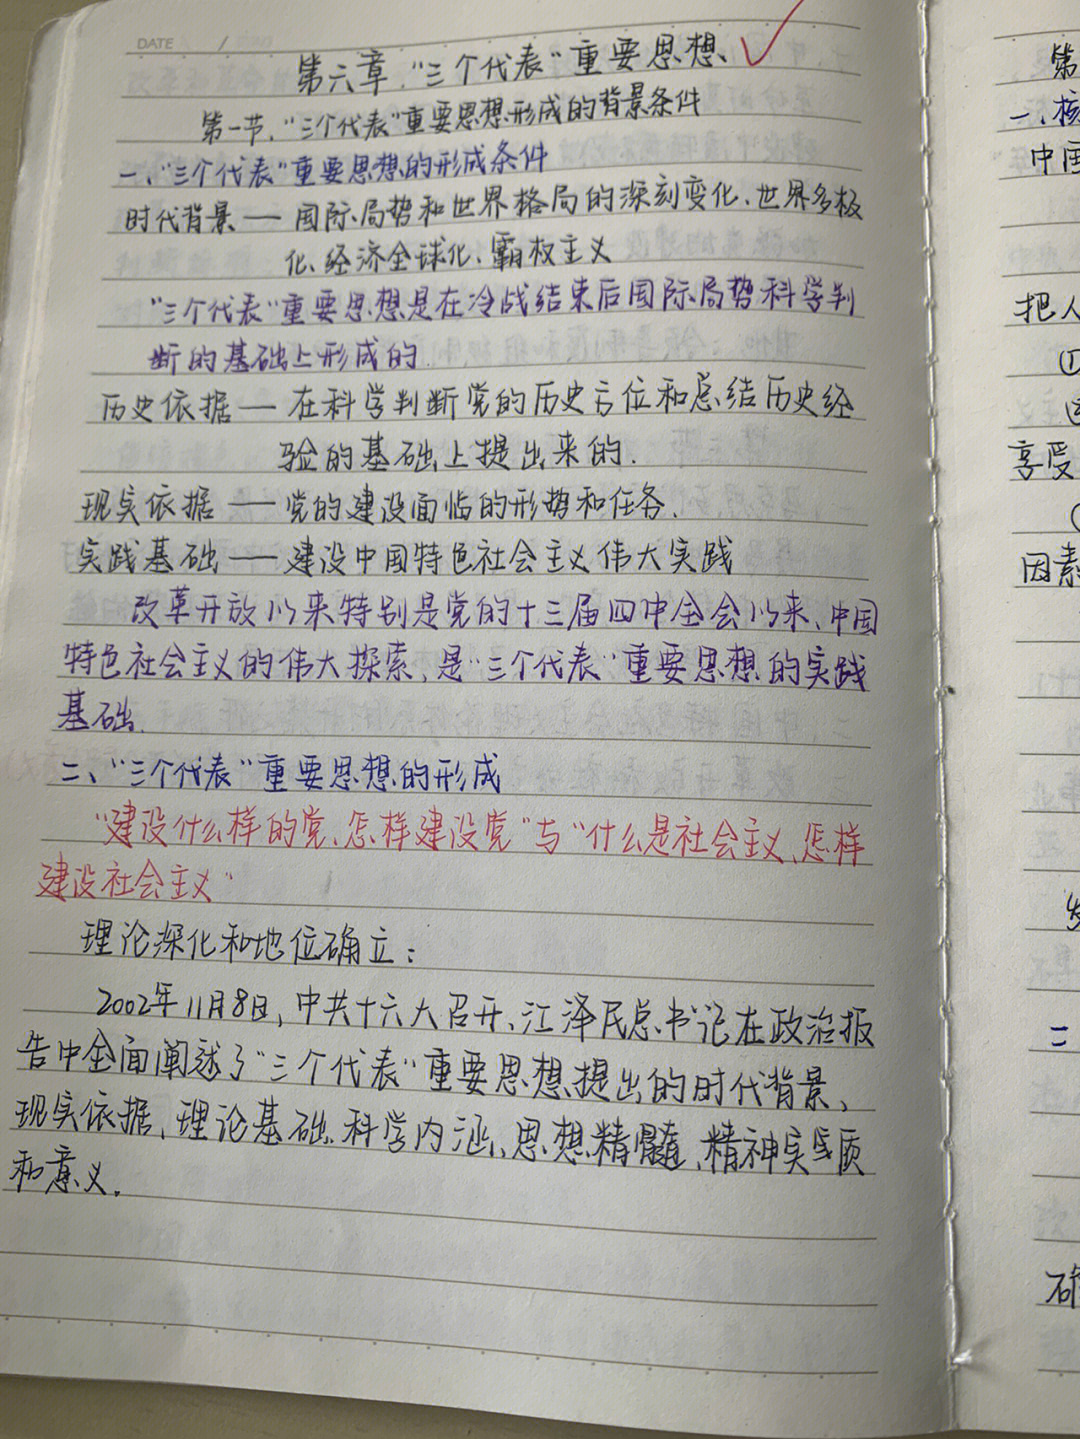 DATE /
第六章."三个代表"重要思想
第一节."三个代表"重要思想形成的背景条件
一、"三个代表"重要思想的形成条件
时代背景——国际局势和世界格局的深刻变化、世界多极
化、经济全球化、霸权主义
"三个代表"重要思想是在冷战结束后国际局势科学判
断的基础上形成的.
历史依据——在科学判断党的历史方位和总结历史经
验的基础上提出来的.
现实依据——党的建设面临的形势和任务.
实践基础——建设中国特色社会主义伟大实践
改革开放以来特别是党的十三届四中全会以来、中国
特色社会主义的伟大探索,是"三个代表"重要思想的实践
基础.
二、"三个代表"重要思想的形成
"建设什么样的党、怎样建设党"与"什么是社会主义、怎样
建设社会主义"
理论深化和地位确立:
2002年11月8日,中共十六大召开、江泽民总书记在政治报
告中全面阐述了"三个代表"重要思想提出的时代背景、
现实依据,理论基础、科学内涵、思想精髓、精神实质
和意义.
第
一、核
中国
把人
①
享受
因素
二